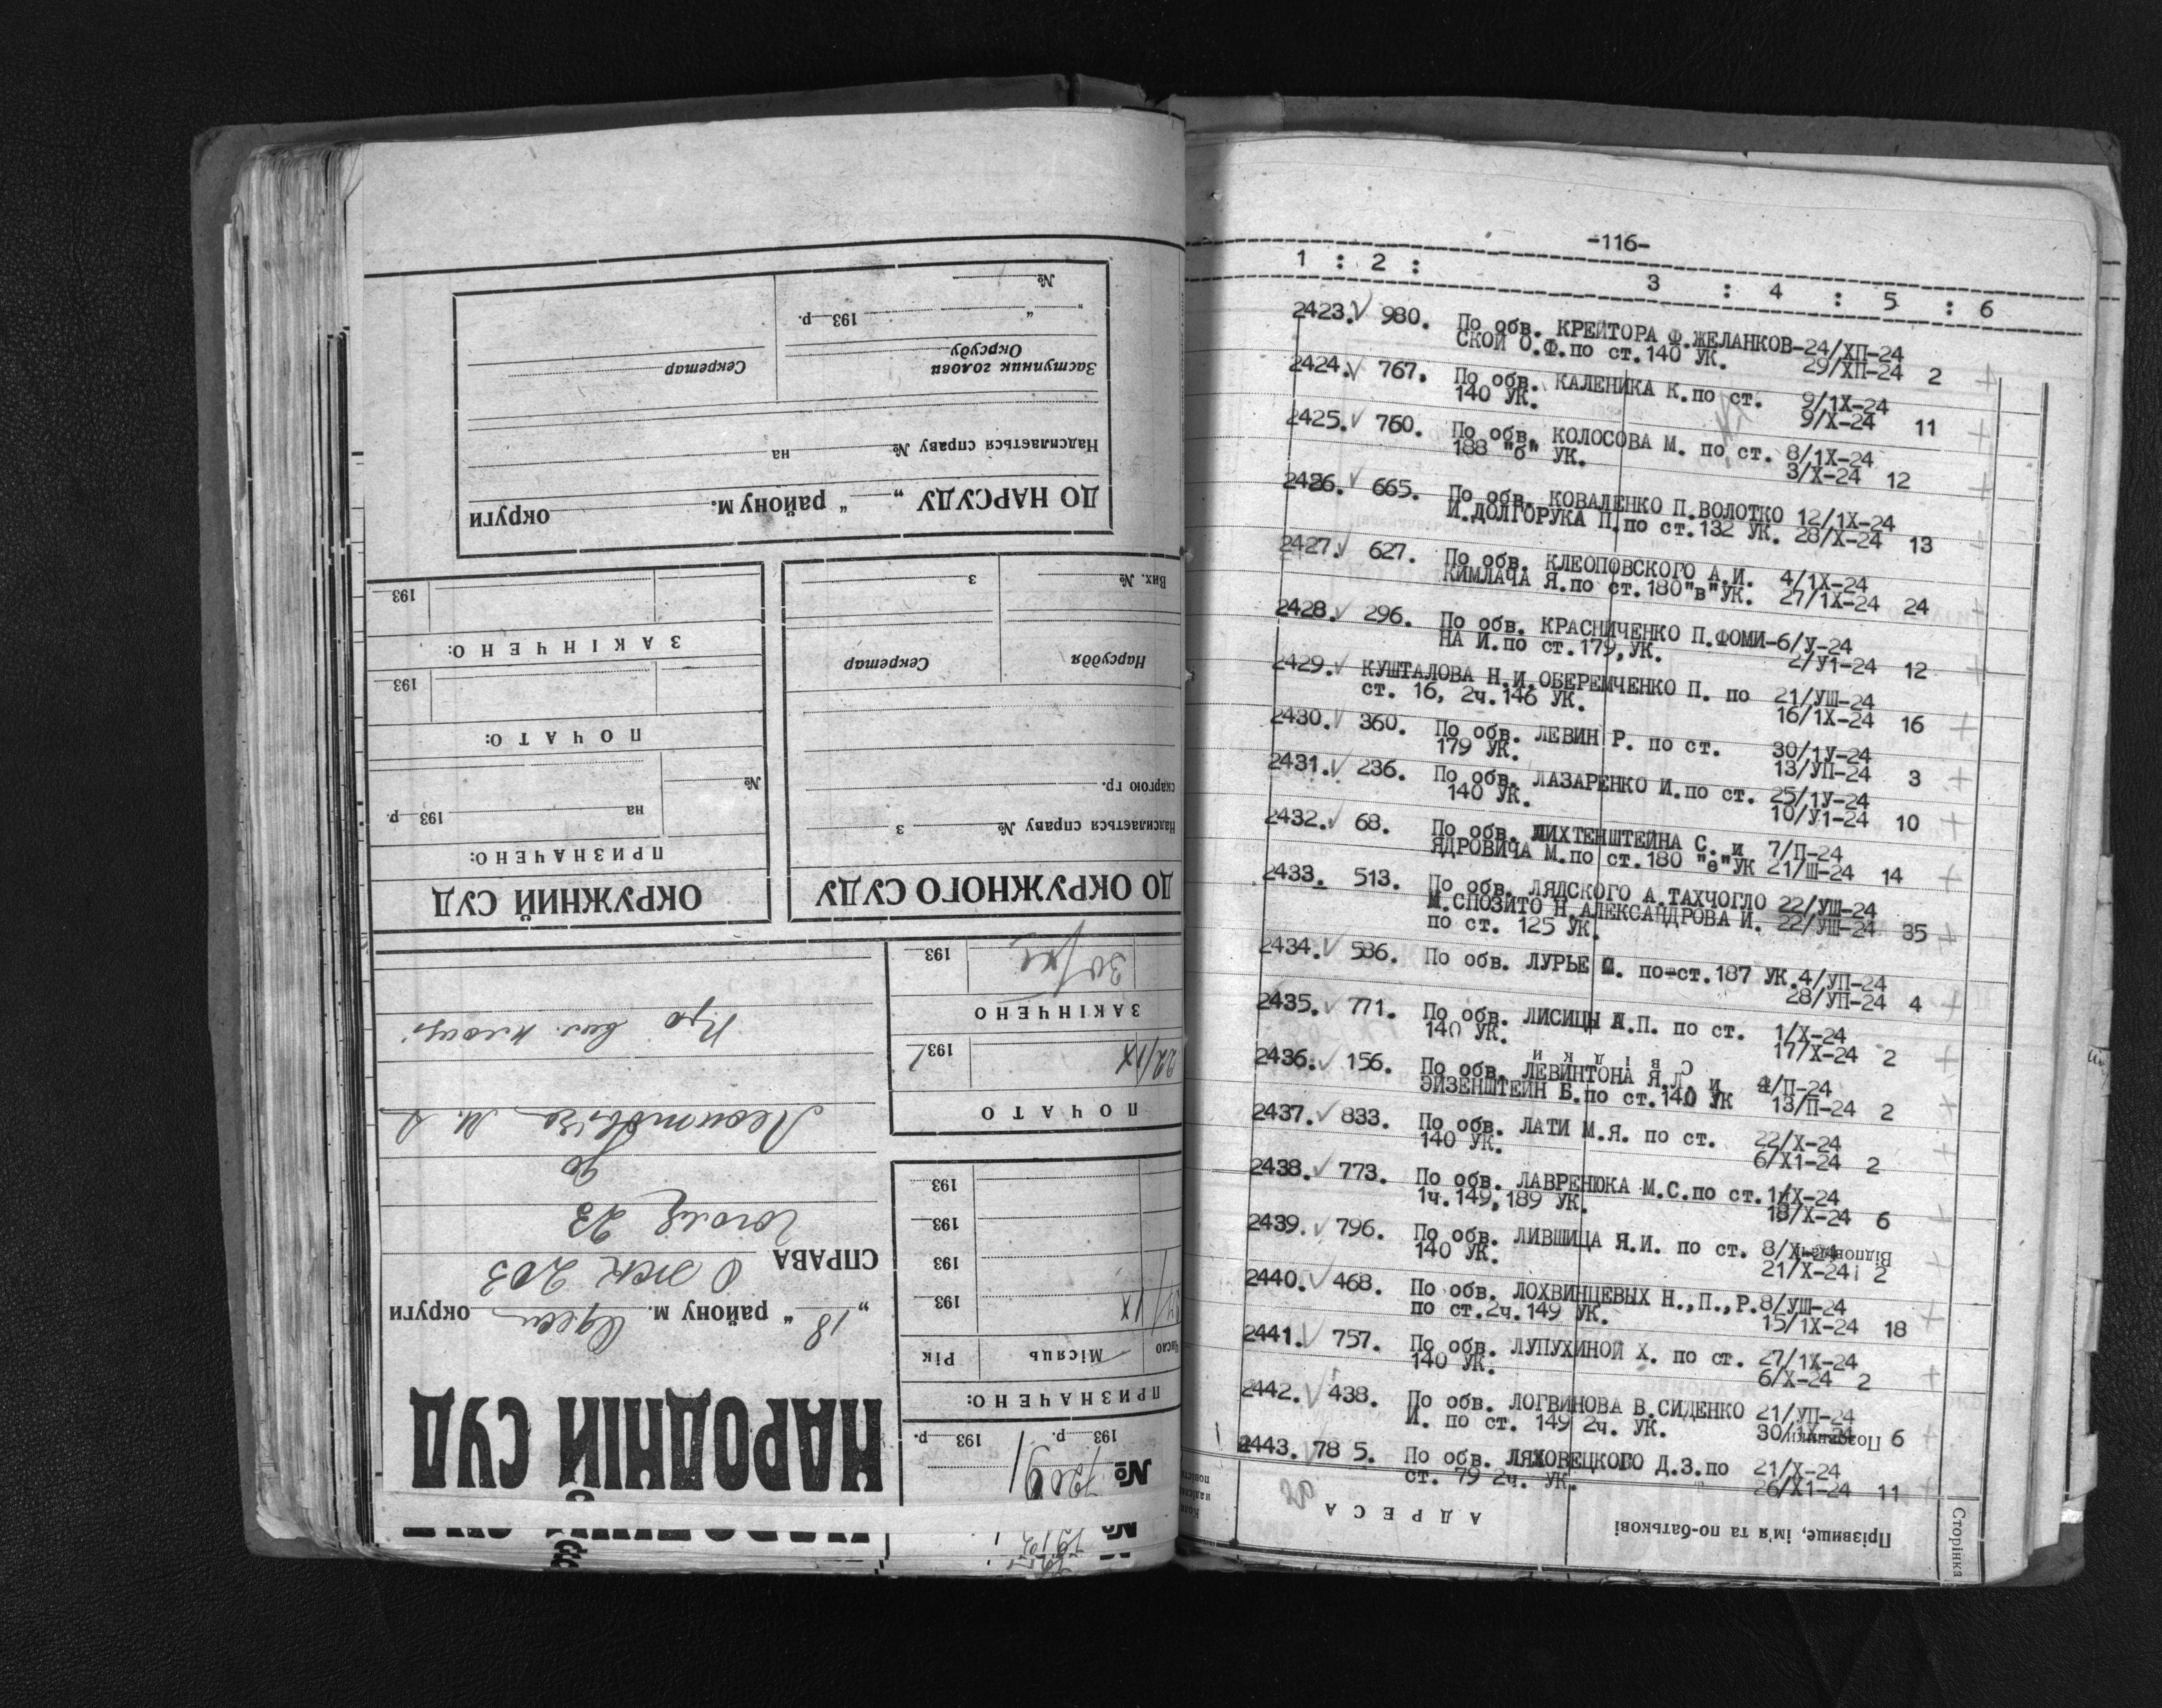 №
" " 193 р.
Заступник голови
Окрсуду
Секретар
Надсилається справу № на
ДО НАРСУДУ " " району м. округи
Вих. № з
Нарсуддя Секретар
скаргою гр.
Надсилається справу № з
ДО ОКРУЖНОГО СУДУ
193
ЗАКІНЧЕНО:
193
ПОЧАТО:
№
на 193 р.
ПРИЗНАЧЕНО:
ОКРУЖНИЙ СУД
НАРОДНІЙ СУД
" 18 " району м. Одеси округи
СПРАВА
№
193 р. 193 р.
ПРИЗНАЧЕНО:
Число Місяць Рік
193
193
193
193
ПОЧАТО
22/IX 193
ЗАКІНЧЕНО
193
-116-
1 : 2 : 3 : 4 : 5 : 6
2423. 980. По обв. КРЕЙТОРА Ф.ЖЕЛАНКОВ-24/ХП-24
СКОЙ О.Ф.по ст.140 УК. 29/ХП-24 2
2424. 767. По обв. КАЛЕНИКА К.по ст. 9/1Х-24
140 УК. 9/Х-24 11
2425. 760. По обв. КОЛОСОВА М. по ст. 8/1Х-24
188 "б" УК. 3/Х-24 12
2426. 665. По обв. КОВАЛЕНКО П.ВОЛОТКО 12/1Х-24
И.ДОЛГОРУКА П.по ст.132 УК. 28/Х-24 13
2427. 627. По обв. КЛЕОПОВСКОГО А.И. 4/1Х-24
КИМЛАЧА Я.по ст.180"в"УК. 27/1Х-24 24
2428. 296. По обв. КРАСНИЧЕНКО П.ФОМИ-6/У-24
НА И.по ст.179,УК. 2/У1-24 12
2429. КУШТАЛОВА Н.И.ОБЕРЕМЧЕНКО П. по 21/УШ-24
ст. 16, 2ч.146 УК. 16/1Х-24 16
2430. 360. По обв. ЛЕВИН Р. по ст. 30/1У-24
179 УК. 13/УП-24 3
2431. 236. По обв. ЛАЗАРЕНКО И.по ст. 25/1У-24
140 УК. 10/У1-24 10
2432. 68. По обв. ЛИХТЕНШТЕЙНА С. и 7/П-24
ЯДРОВИЧА М.по ст.180 "е"УК 21/Ш-24 14
2433. 513. По обв. ЛЯДСКОГО А.ТАХЧОГЛО 22/УШ-24
М.СПОЗИТО Н.АЛЕКСАНДРОВА И. 22/УШ-24 35
по ст. 125 УК.
2434. 586. По обв. ЛУРЬЕ С. по-ст.187 УК.4/УП-24
28/УП-24 4
2435. 771. По обв. ЛИСИЦЫ А.П. по ст. 1/Х-24
140 УК. 17/Х-24 2
Свідки
2436. 156. По обв. ЛЕВИНТОНА Я.Л. и 4/П-24
ЭЙЗЕНШТЕЙН Б.по ст.140 УК 13/П-24 2
2437. 833. По обв. ЛАТИ М.Я. по ст. 22/Х-24
140 УК. 6/Х1-24 2
2438. 773. По обв. ЛАВРЕНЮКА М.С.по ст.1/Х-24
1ч.149,189 УК. 18/Х-24 6
2439. 796. По обв. ЛИВШИЦА Я.И. по ст. 8/Х-24
140 УК. 21/Х-24 2
Відповідачі
2440. 468. По обв. ЛОХВИНЦЕВЫХ Н.,П.,Р.8/УШ-24
по ст.2ч.149 УК. 15/1Х-24 18
2441. 757. По обв. ЛУПУХИНОЙ Х. по ст. 27/1Х-24
140 УК. 6/Х-24 2
2442. 438. По обв. ЛОГВИНОВА В.СИДЕНКО 21/УП-24
И. по ст. 149 2ч. УК. 30/1Х-24 6
2443. 78 5. По обв. ЛЯХОВЕЦКОГО Д.З.по 21/Х-24
ст. 79 2ч. УК. 26/Х1-24 11
Сторінка
Прізвище, ім'я та по-батькові
АДРЕСА